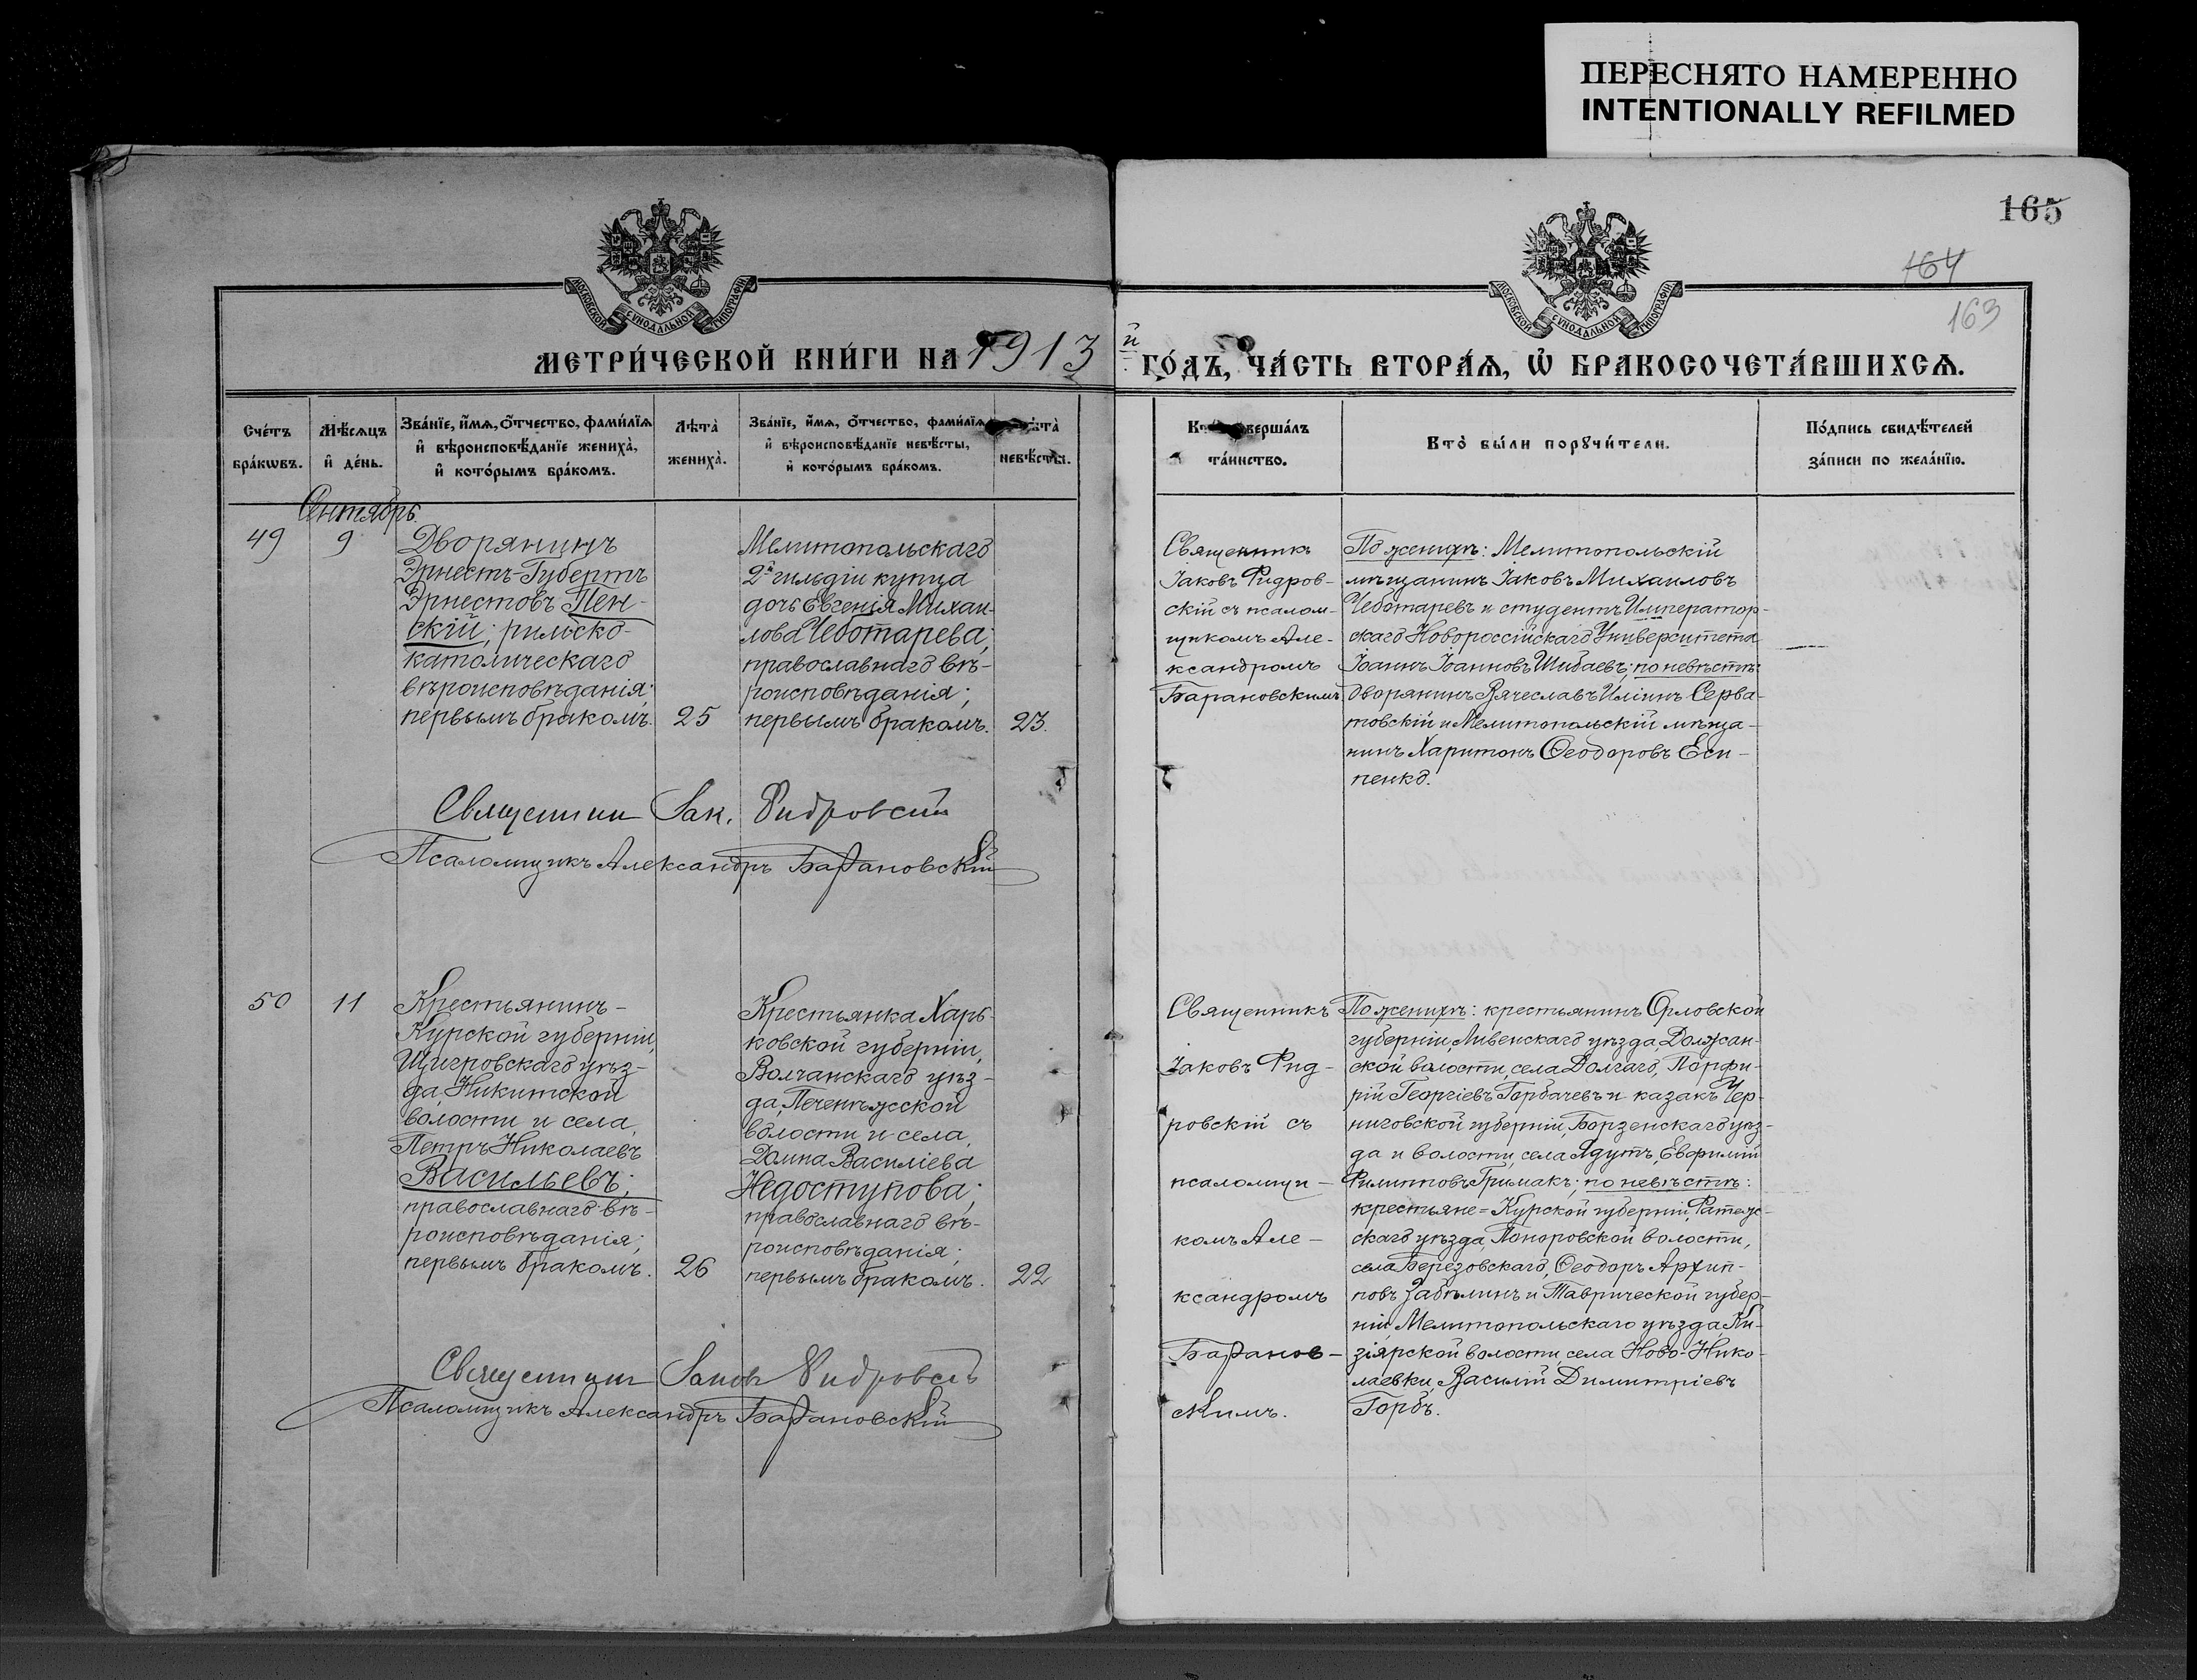 ПЕРЕСНЯТО НАМЕРЕННО
INTENTIONALLY REFILMED
165
164
163
МОСКОВСКОЙ СѴНОДАЛЬНОЙ ТИПОГРАФІИ
МОСКОВСКОЙ СѴНОДАЛЬНОЙ ТИПОГРАФІИ
МЕТРИ́ЧЕСКОЙ КНИ́ГИ НА 1913 й ГО́ДЪ, ЧА́СТЬ ВТОРА́Ѧ, Ѽ БРАКОСОЧЕТА́ВШИХСѦ.
Сче́тъ
бра́кѡвъ.
Мѣ́сѧцъ
и҆ де́нь.
Зва́нїе, и҆́мѧ, ѻ҆́тчество, фами́лїѧ
и҆ вѣроисповѣ́данїе жениха̀,
и҆ кото́рымъ бра́комъ.
Лѣ́та̀
жениха̀.
Зва́нїе, и҆́мѧ, ѻ҆́тчество, фами́лїѧ
и҆ вѣроисповѣ́данїе невѣ́сты,
и҆ кото́рымъ бра́комъ.
невѣ́сты.
верша́лъ
та́инство.
Кто̀ бы́ли порꙋчи́тели.
По́дпись свидѣ́телей
за́писи по жела́нїю.
Сентябрь.
49
9
Дворянинъ
Эрнестъ-Губертъ
Эрнестовъ Пен-
скій; римско-
католическаго
вѣроисповѣданія;
первымъ бракомъ.
25
Мелитопольскаго
2й гильдіи купца
дочь Евгенія Михаи-
лова Чеботарева;
православнаго вѣ-
роисповѣданія;
первымъ бракомъ.
23.
Священникъ
Іаковъ Фидров-
скій съ псалом-
щикомъ Але-
ксандромъ
Барановскимъ
По женихѣ: Мелитопольскій
мѣщанинъ Іаковъ Михаиловъ
Чеботаревъ и студентъ Император-
скаго Новороссійскаго Университета
Іоаннъ Іоанновъ Шибаевъ; по невѣстѣ:
дворянинъ Вячеславъ Иліинъ Серва-
товскій и Мелитопольскій мѣща-
нинъ Харитонъ Ѳеодоровъ Еси-
пенко.
Священник Іак. Фидровскій
Псаломщикъ Александръ Барановскій
50
11
Крестьянинъ-
Курской губерніи,
Щигровскаго уѣз-
да, Никитской
волости и села,
Петръ Николаевъ
Васильевъ;
православнаго вѣ-
роисповѣданія;
первымъ бракомъ.
26
Крестьянка Харь-
ковской губерніи,
Волчанскаго уѣз-
да, Печенѣжской
волости и села,
Домна Василіева
Недоступова;
православнаго вѣ-
роисповѣданія;
первымъ бракомъ.
22
Священникъ
Іаковъ Фид-
ровскій съ
псаломщи-
комъ Але-
ксандромъ
Баранов-
скимъ.
По женихѣ: крестьянинъ Орловской
губерніи, Ливенскаго уѣзда, Должан-
ской волости, села Долгаго, Порфи-
рій Георгіевъ Горбачевъ и казакъ Чер-
ниговской губерніи, Борзенскаго уѣз-
да и волости, села Ядутъ, Евфимій
Филипповъ Примакъ; по невѣстѣ:
крестьяне=Курской губерніи, Фатеж-
скаго уѣзда, Поныровской волости,
села Березовскаго, Ѳеодоръ Архип-
повъ Забѣлинъ и Таврической губер-
ніи, Мелитопольскаго уѣзда, Ки-
зіярской волости, села Ново-Нико-
лаевки, Василій Димитріевъ
Горбъ.
Священник Іаков Фидровскій
Псаломщикъ Александръ Барановскій